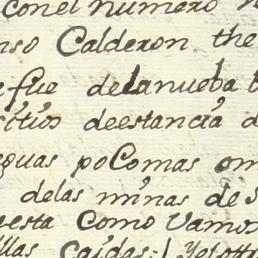 con el numero
nso Calderon the
e fue de la nueba
sitios de estancia d
eguas po Comas om
de las minas de S
uesta Como Vamos
llas Caidas: